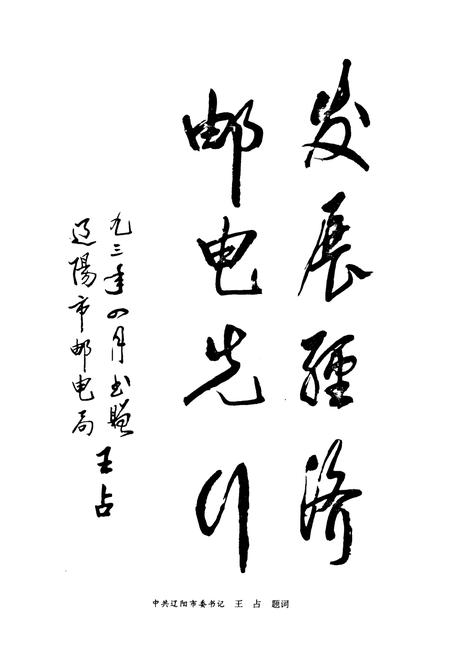 发展经济
邮电先行
九三年四月书赠
辽陽市邮电局
王占
中共辽阳市委书记 王 占 题词